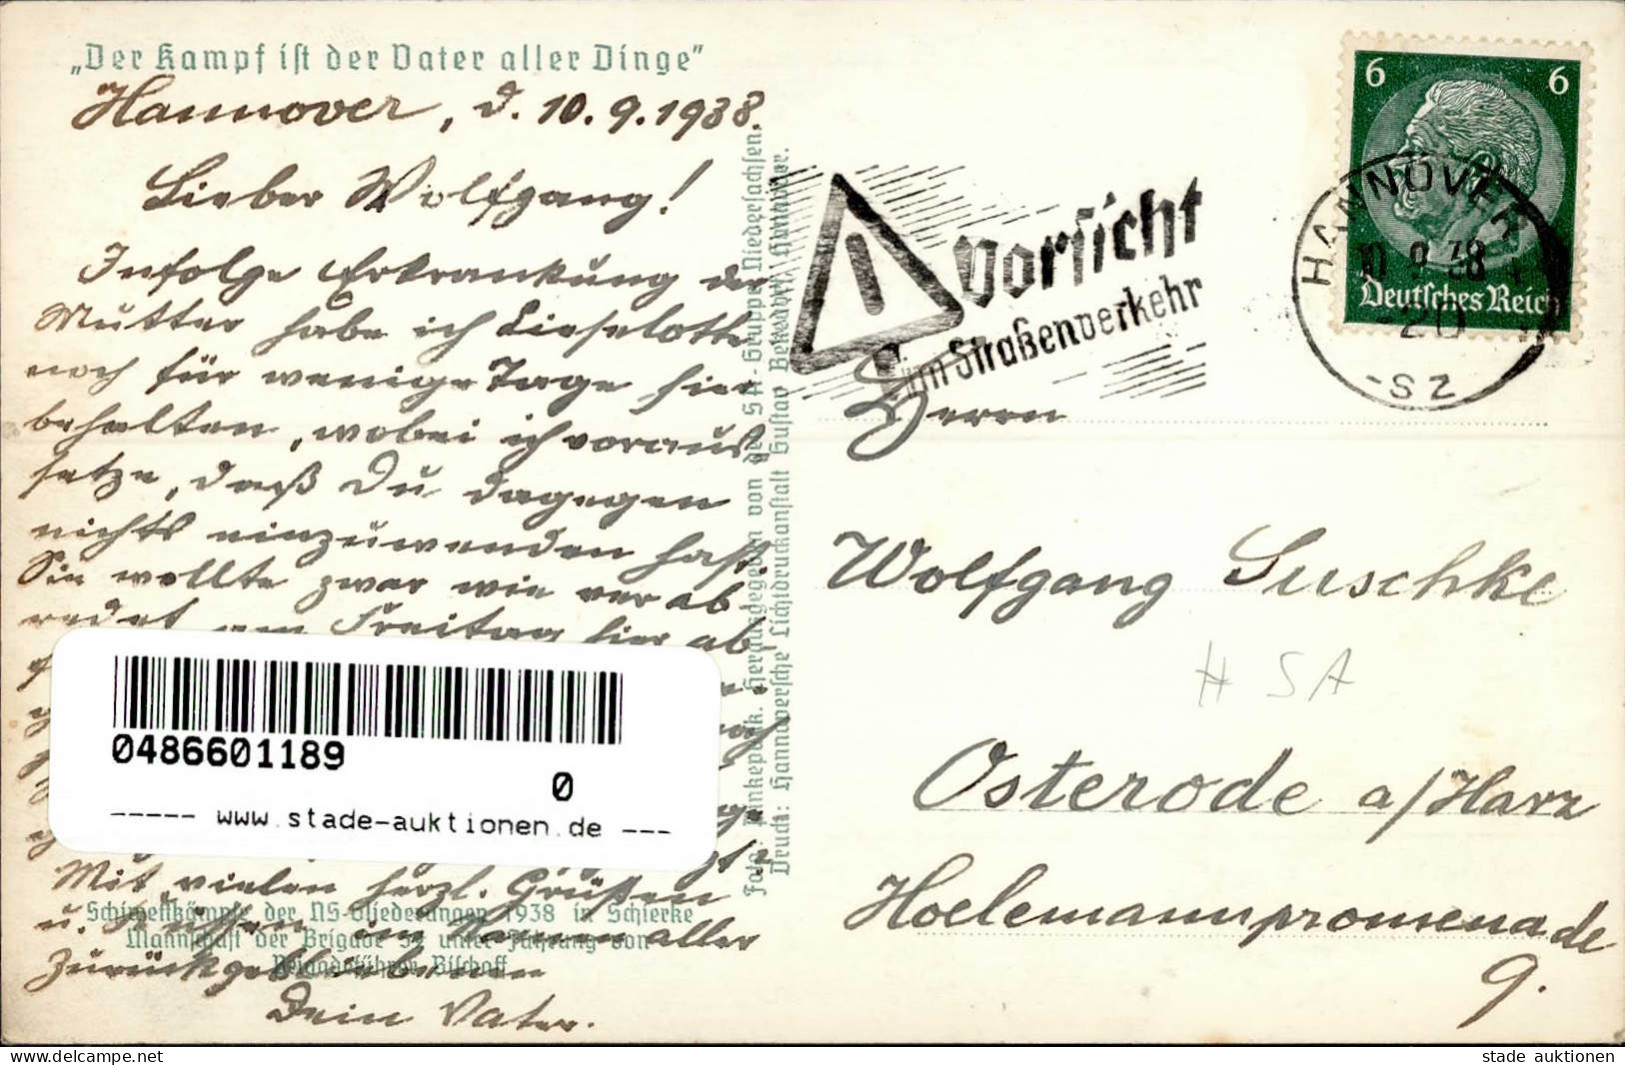 „Der Kampf ist der Vater aller Dinge"
Hannover, d. 10.9.1938.
Lieber Wolfgang!
Infolge Erkrankung der
Mutter habe ich Lieselotte
noch für wenige Tage hier
behalten, wobei ich voraus
setze, daß Du dagegen
nichts einzuwenden hast.
Sie wollte zwar wie ver ab
redet am Freitag hier ab
noch
Mit vielen herzl. Grüßen
u. Küssen im Namen aller
Zurückgebliebenen
Dein Vater.
Schiwettkämpfe der NS-Gliederungen 1938 in Schierke
Mannschaft der Brigade 57 unter Führung von
Brigadeführer Bischoff
0486601189
0
----- www.stade-auktionen.de ---
Foto: Pankepank. Herausgegeben von der SA-Gruppe Niedersachsen.
Druck: Hannoversche Lichtdruckanstalt Gustav Bensdorf, Hannover.
Vorsicht
im Straßenverkehr
6 6
Deutsches Reich
HANNOVER
10 9.38
-20
-SZ
Herrn
Wolfgang Luschke
H SA
Osterode a/Harz
Hoelemannpromenade
9.
Ak-ansichtskarten.de
stade auktionen